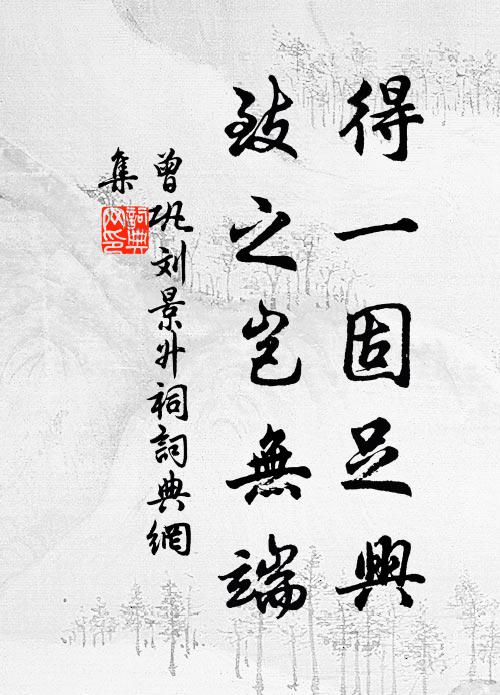 得一固足興
致之豈無端
曾巩刘景升祠詞典網
集
詞典網印